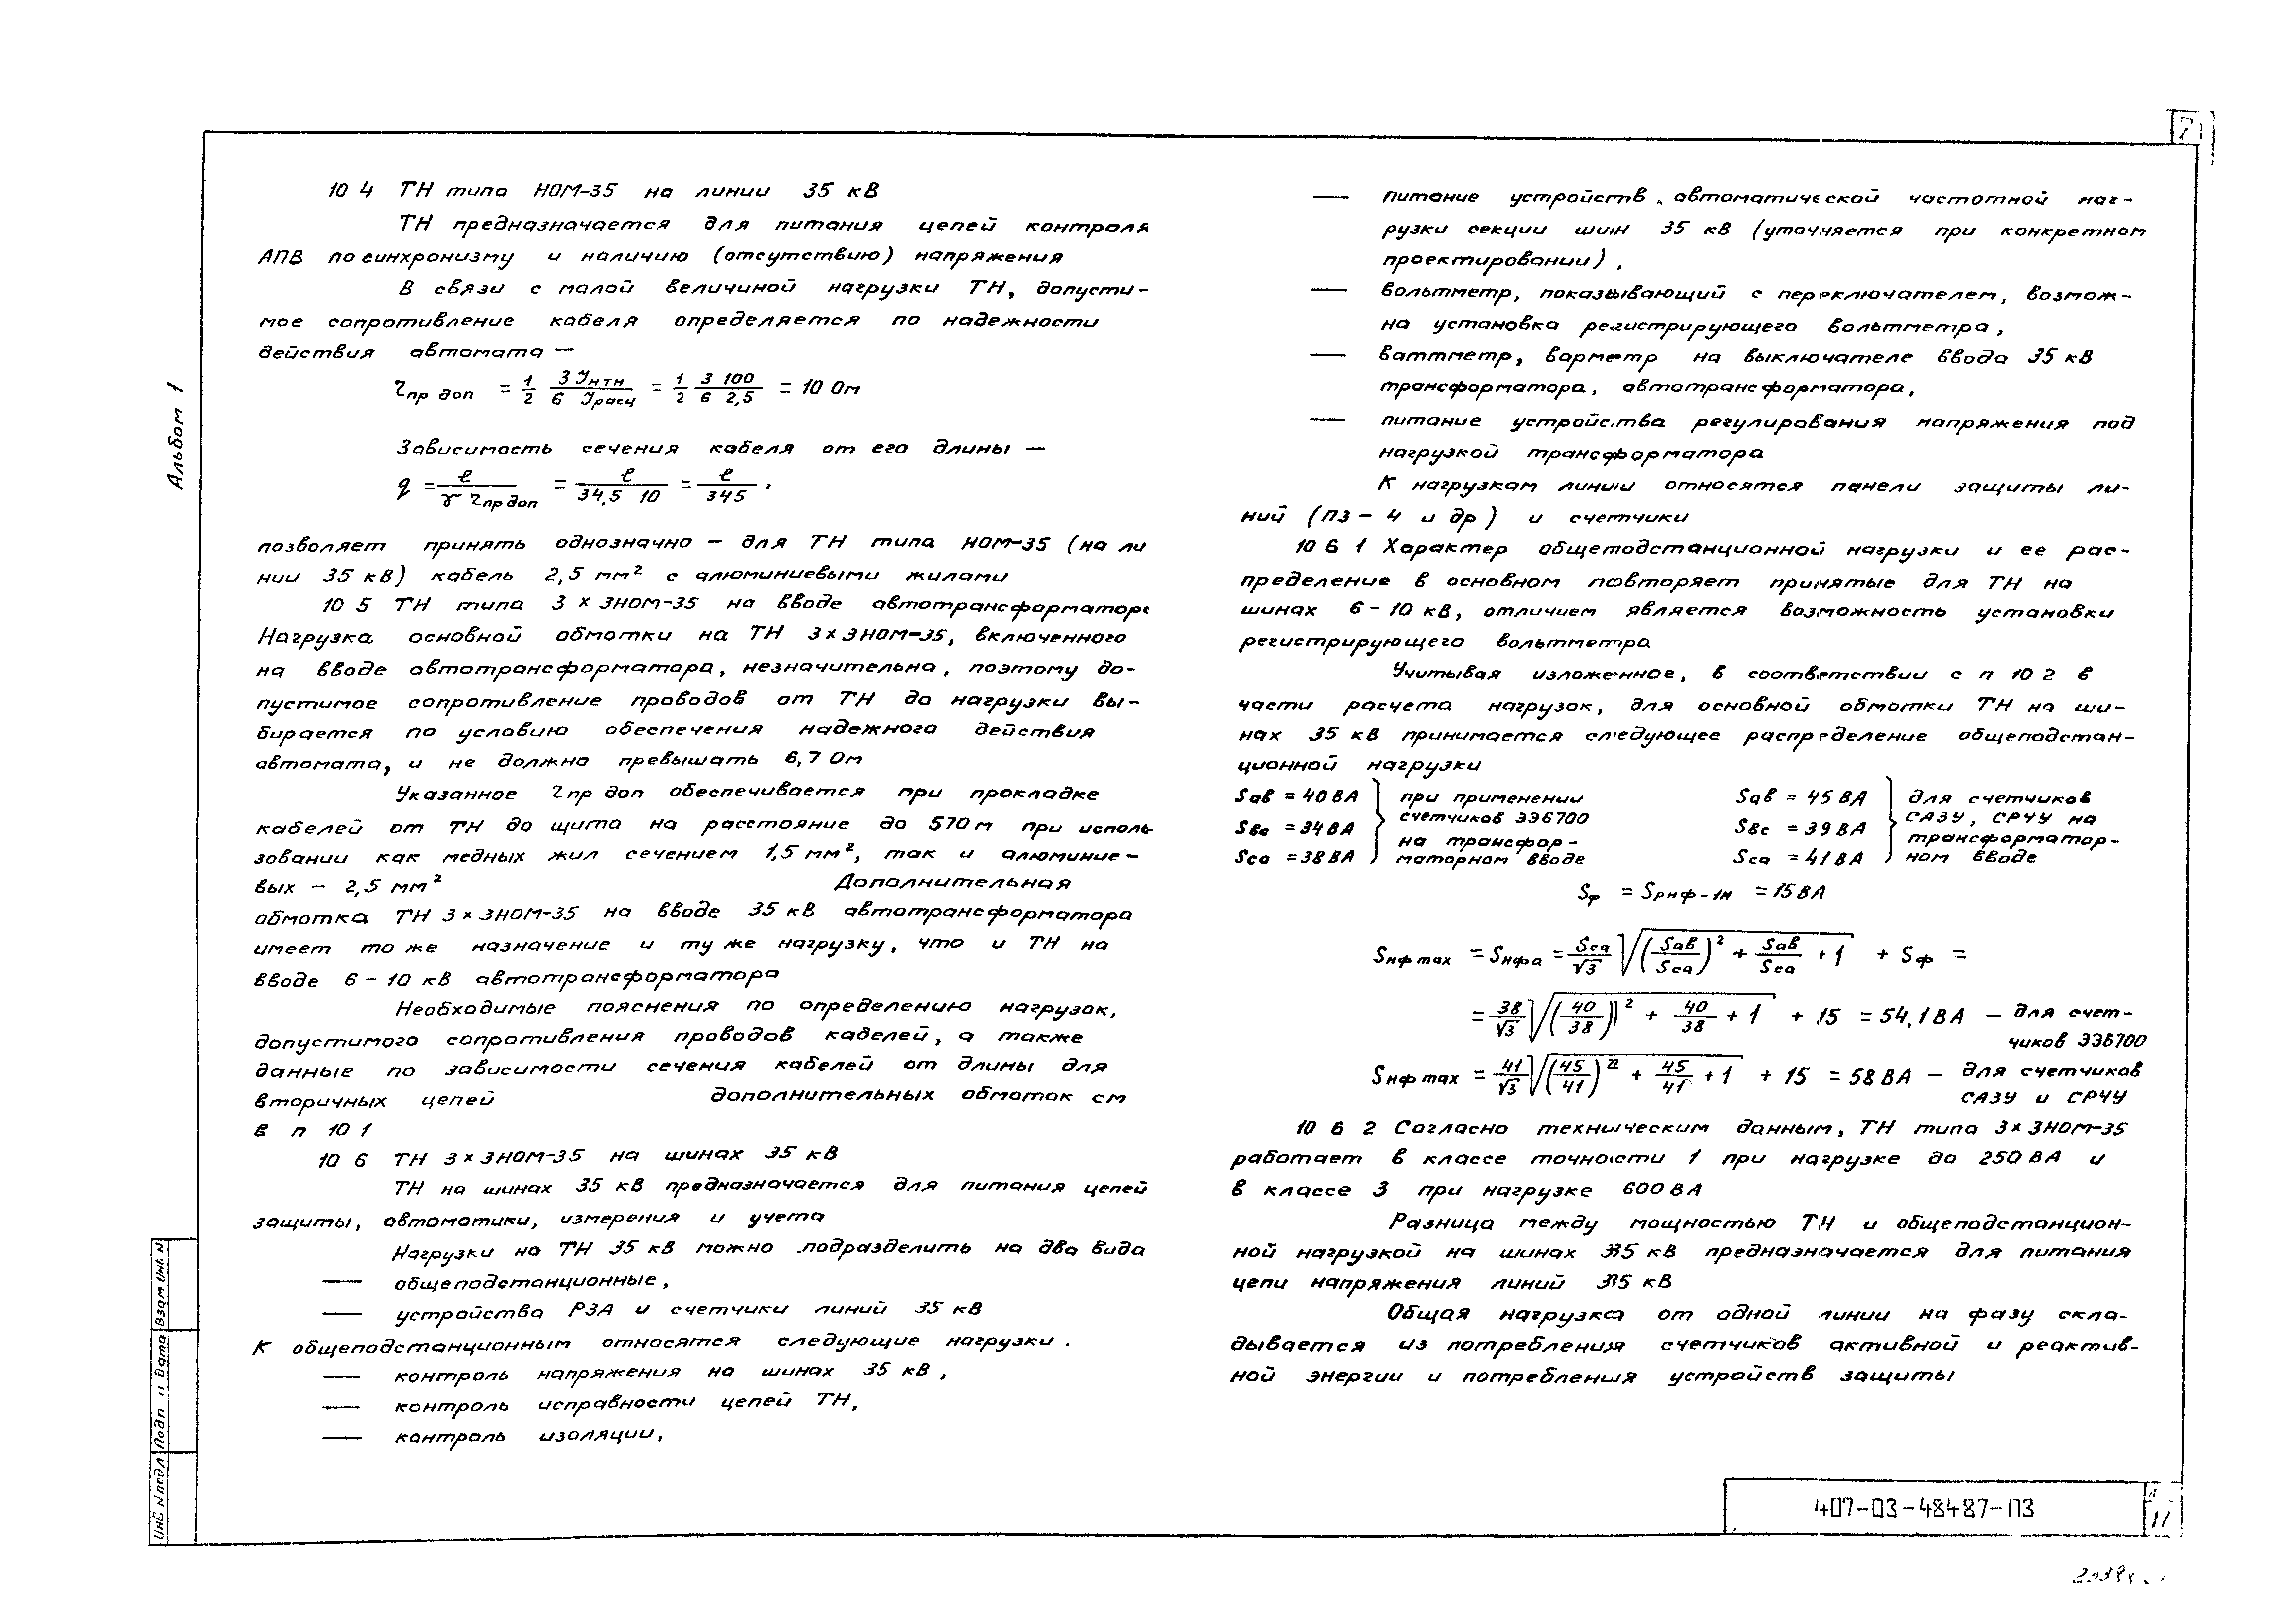 7
Альбом 1
10 4 ТН типа НОМ-35 на линии 35 кВ
ТН предназначается для питания цепей контроля
АПВ по синхронизму и наличию (отсутствию) напряжения
В связи с малой величиной нагрузки ТН, допусти-
мое сопротивление кабеля определяется по надежности
действия автомата —
τпр доп = 1/2 3 Jнтн / 6 Jрасц = 1/2 3 100 / 6 2,5 = 10 Ом
Зависимость сечения кабеля от его длины —
q = ℓ / γ τпр доп = ℓ / 34,5 10 = ℓ / 345 ,
позволяет принять однозначно – для ТН типа НОМ-35 (на ли
нии 35 кВ) кабель 2,5 мм² с алюминиевыми жилами
10 5 ТН типа 3 × ЗНОМ-35 на вводе автотрансформаторс
Нагрузка основной обмотки на ТН 3×ЗНОМ-35, включенного
на вводе автотрансформатора, незначительна, поэтому до-
пустимое сопротивление проводов от ТН до нагрузки вы-
бирается по условию обеспечения надежного действия
автомата, и не должно превышать 6,7 Ом
Указанное τпр доп обеспечивается при прокладке
кабелей от ТН до щита на расстояние до 570 м при исполь
зовании как медных жил сечением 1,5 мм², так и алюминие-
вых – 2,5 мм² Дополнительная
обмотка ТН 3×ЗНОМ-35 на вводе 35 кВ автотрансформатора
имеет то же назначение и ту же нагрузку, что и ТН на
вводе 6-10 кВ автотрансформатора
Необходимые пояснения по определению нагрузок,
допустимого сопротивления проводов кабелей, а также
данные по зависимости сечения кабелей от длины для
вторичных цепей дополнительных обмоток см
в п 10 1
10 6 ТН 3×ЗНОМ-35 на шинах 35 кВ
ТН на шинах 35 кВ предназначается для питания цепей
защиты, автоматики, измерения и учета
Нагрузки на ТН 35 кВ можно подразделить на два вида
— общеподстанционные,
— устройства РЗА и счетчики линий 35 кВ
К общеподстанционным относятся следующие нагрузки .
— контроль напряжения на шинах 35 кВ,
— контроль исправности цепей ТН,
— контроль изоляции,
— питание устройств автоматической частотной наг-
рузки секции шин 35 кВ (уточняется при конкретном
проектировании),
— вольтметр, показывающий с переключателем, возмож-
на установка регистрирующего вольтметра,
— ваттметр, варметр на выключателе ввода 35 кВ
трансформатора, автотрансформатора,
— питание устройства регулирования напряжения под
нагрузкой трансформатора
К нагрузкам линии относятся панели защиты ли-
ний (ПЗ-4 и др) и счетчики
10 6 1 Характер общеподстанционной нагрузки и ее рас-
пределение в основном повторяет принятые для ТН на
шинах 6-10 кВ, отличием является возможность установки
регистрирующего вольтметра
Учитывая изложенное, в соответствии с п 10 2 в
части расчета нагрузок, для основной обмотки ТН на ши-
нах 35 кВ принимается следующее распределение общеподстан-
ционной нагрузки
Sав = 40 ВА при применении Sав = 45 ВА для счетчиков
счетчиков ЭЭ6700 САЗУ, СРЧУ на
Sвс = 34 ВА на трансфор- Sвс = 39 ВА трансформатор-
Sса = 38 ВА маторном вводе Sса = 41 ВА ном вводе
Sф = Sрнф-1м = 15 ВА
Sнф max = Sнфа = Sса/√3 √((Sав/Sса)² + Sав/Sса + 1) + Sф =
= 38/√3 √((40/38))² + 40/38 + 1 + 15 = 54,1 ВА – для счет-
чиков ЭЭ6700
Sнф max = 41/√3 √((45/41)² + 45/41 + 1) + 15 = 58 ВА – для счетчиков
САЗУ и СРЧУ
10 6 2 Согласно техническим данным, ТН типа 3×ЗНОМ-35
работает в классе точности 1 при нагрузке до 250 ВА и
в классе 3 при нагрузке 600 ВА
Разница между мощностью ТН и общеподстанцион-
ной нагрузкой на шинах 35 кВ предназначается для питания
цепи напряжения линий 35 кВ
Общая нагрузка от одной линии на фазу скла-
дывается из потребления счетчиков активной и реактив-
ной энергии и потребления устройств защиты
Инв N подл Подп и дата Взам инв N
407-03-484 87-ПЗ
11